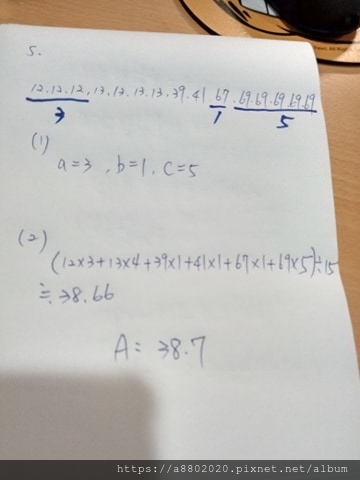 5.
12.12.12.13.13.13.13.39.41.67.69.69.69.69.69
3 1 5
(1)
a=3, b=1, c=5
(2)
(12×3+13×4+39×1+41×1+67×1+69×5)÷15
≒38.66
A= 38.7
https://a8802020.pixnet.net/album